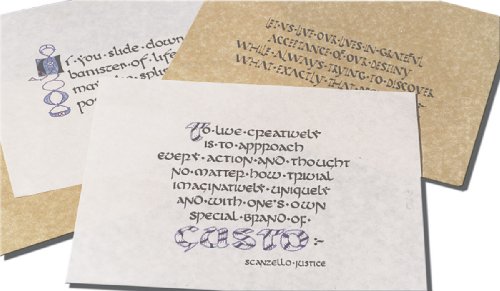 If·you slide down
banister·of·life
LET·US·LIVE·OUR·LIVES·IN·GRATEFUL
ACCEPTANCE·OF·OUR·DESTINY
WHILE·ALWAYS·TRYING·TO·DISCOVER
WHAT·EXACTLY·THAT
To·live·creatively
is·to·approach
every·action·and·thought
no·matter·how·trivial
imaginatively·uniquely
and·with·one's·own
special·brand·of
GUSTO:-
SCANZELLO·JUSTICE